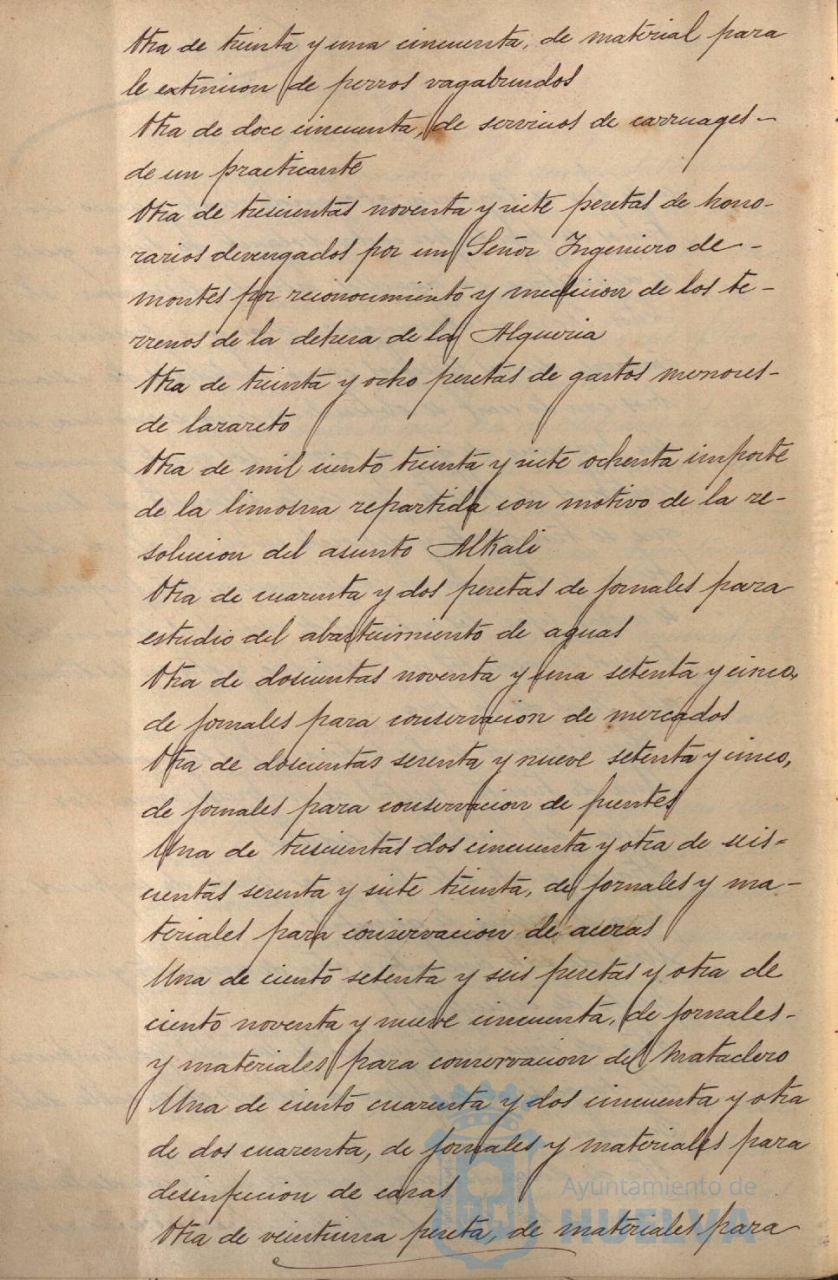 Otra de treinta y una cincuenta, de material para
la extincion de perros vagabundos
Otra de doce cincuenta, de servicios de carruages-
de un practicante
Otra de trescientas noventa y siete pesetas de hono-
rarios devengados por un Señor Ingeniero de-
montes por reconocimiento y medicion de los te-
rrenos de la dehesa de la Alqueria
Otra de treinta y ocho pesetas de gastos menores-
de lazareto
Otra de mil ciento treinta y siete ochenta importe
de la limosna repartida con motivo de la re-
solucion del asunto Alkali
Otra de cuarenta y dos pesetas de jornales para
estudio del abastecimiento de aguas
Otra de doscientas noventa y una setenta y cinco,
de jornales para conservacion de mercados
Otra de doscientas sesenta y nueve setenta y cinco,
de jornales para conservacion de fuentes
Una de trescientas dos cincuenta y otra de seis-
cientas sesenta y siete treinta, de jornales y ma-
teriales para conservacion de aceras
Una de ciento setenta y seis pesetas y otra de
ciento noventa y nueve cincuenta, de jornales-
y materiales para conservacion del Matadero
Una de ciento cuarenta y dos cincuenta y otra
de dos cuarenta, de jornales y materiales para
desinfeccion de casas
Otra de veintiuna peseta, de materiales para
Ayuntamiento de
HUELVA